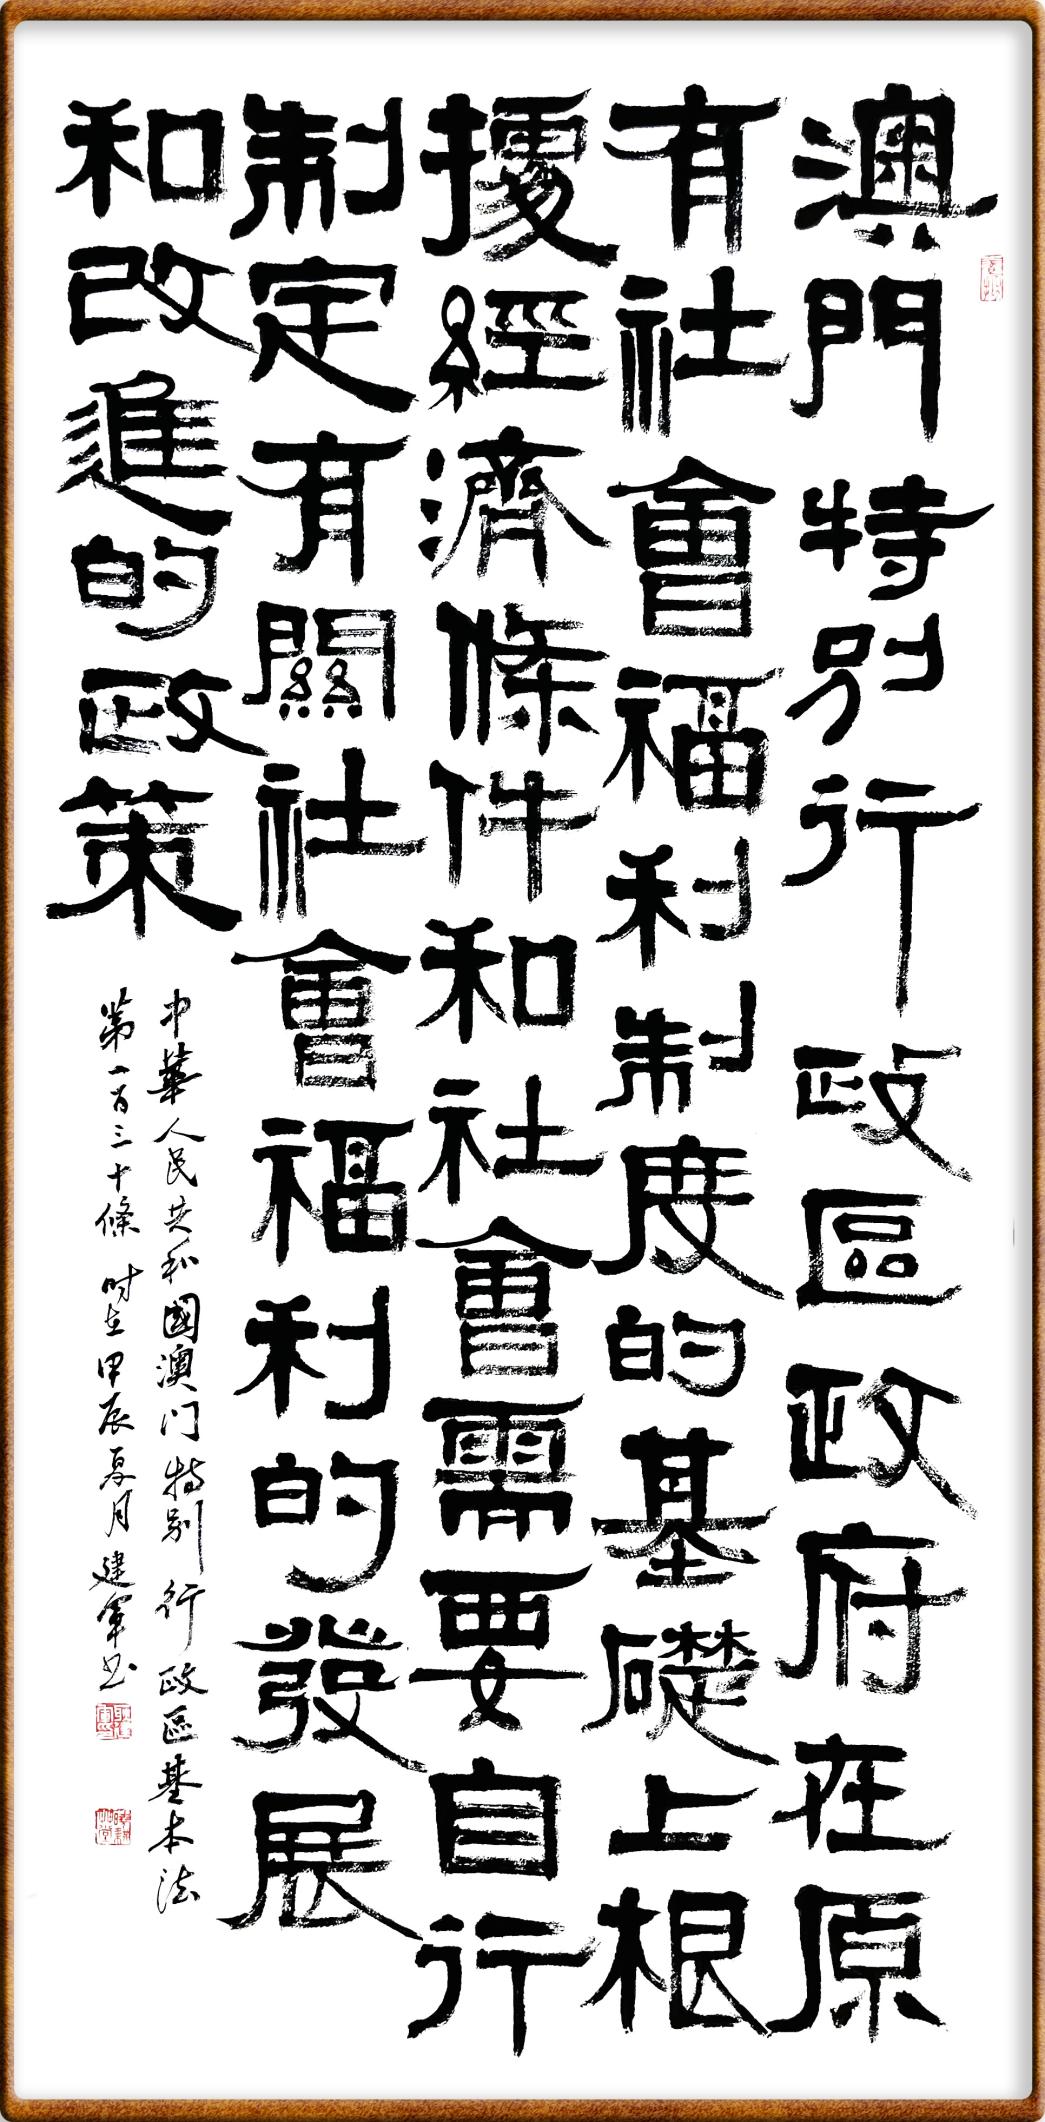 澳門特別行政區政府在原
有社會福利制度的基礎上根
據經濟條件和社會需要自行
制定有關社會福利的發展
和改進的政策
中華人民共和國澳门特别行政區基本法
第一百三十條 时在甲辰夏月建軍书